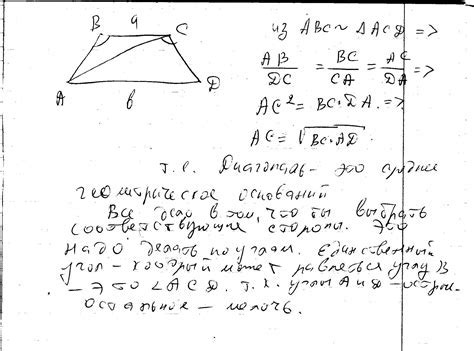 B a C
A b D
из ABC ~ ΔACD =>
AB/DC = BC/CA = AC/DA =>
AC² = BC·DA. =>
AC = √BC·AD.
т.е. Диагональ - это среднее
геометрическое оснований
Все дело в том, что ты выбрать
соответствующие стороны. Это
надо делать по углам. Единственный
угол - который может равняться углу B
- это ∠ACD. т.к. углы A и D - острые.
остальное - мелочь.